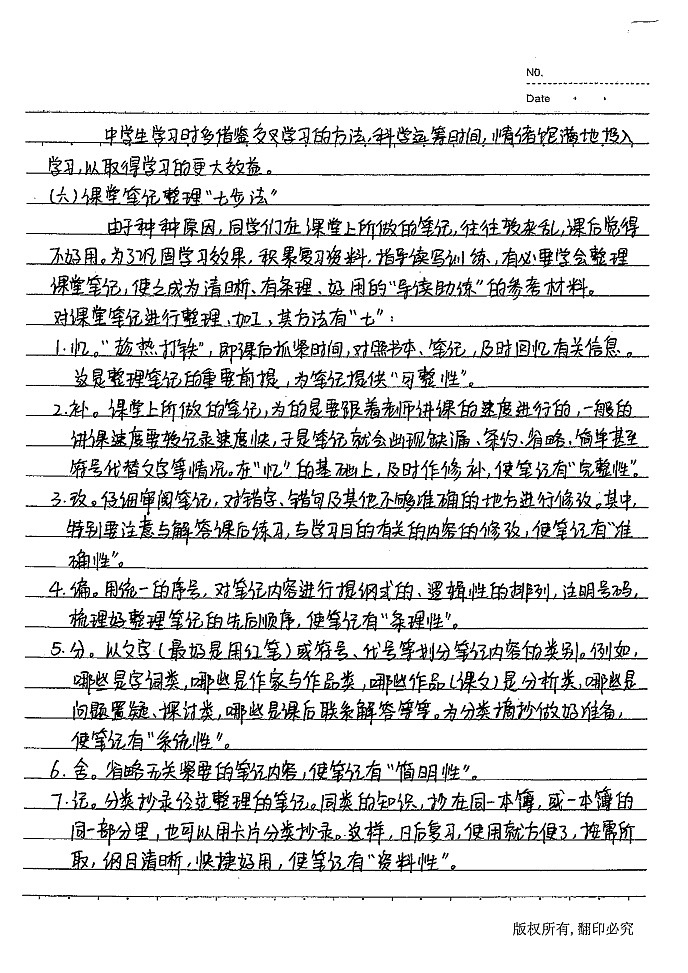 No.
Date
中学生学习时多借鉴交叉学习的方法,科学运筹时间,情绪饱满地投入
学习,以取得学习的更大效益。
(六)课堂笔记整理"七步法"
由于种种原因,同学们在课堂上所做的笔记,往往较杂乱,课后觉得
不好用。为了巩固学习效果,积累复习资料,指导读写训练,有必要学会整理
课堂笔记,使之成为清晰、有条理、好用的"导读助练"的参考材料。
对课堂笔记进行整理、加工,其方法有"七":
1.忆。"趁热打铁",即课后抓紧时间,对照书本、笔记,及时回忆有关信息。
这是整理笔记的重要前提,为笔记提供"可整性"。
2.补。课堂上所做的笔记,为的是要跟着老师讲课的速度进行的,一般的
讲课速度要较记录速度快,于是笔记就会出现缺漏、条约、省略、简单甚至
符号代替文字等情况。在"忆"的基础上,及时作修补,使笔记有"完整性"。
3.改。仔细审阅笔记,对错字、错句及其他不够准确的地方进行修改。其中,
特别要注意与解答课后练习,与学习目的有关的内容的修改,使笔记有"准
确性"。
4.编。用统一的序号,对笔记内容进行提纲式的、逻辑性的排列,注明号码,
梳理好整理笔记的先后顺序,使笔记有"条理性"。
5.分。以文字(最好是用红笔)或符号、代号等划分笔记内容的类别。例如,
哪些是字词类,哪些是作家与作品类,哪些作品(课文)是分析类、哪些是
问题置疑、探讨类,哪些是课后联系解答等等。为分类摘抄做好准备,
使笔记有"系统性"。
6.舍。省略无关紧要的笔记内容,使笔记有"简明性"。
7.记。分类抄录经过整理的笔记。同类的知识,抄在同一本簿,或一本簿的
同一部分里,也可以用卡片分类抄录。这样,日后复习,使用就方便了,按需所
取,纲目清晰,快捷好用,使笔记有"资料性"。
版权所有,翻印必究